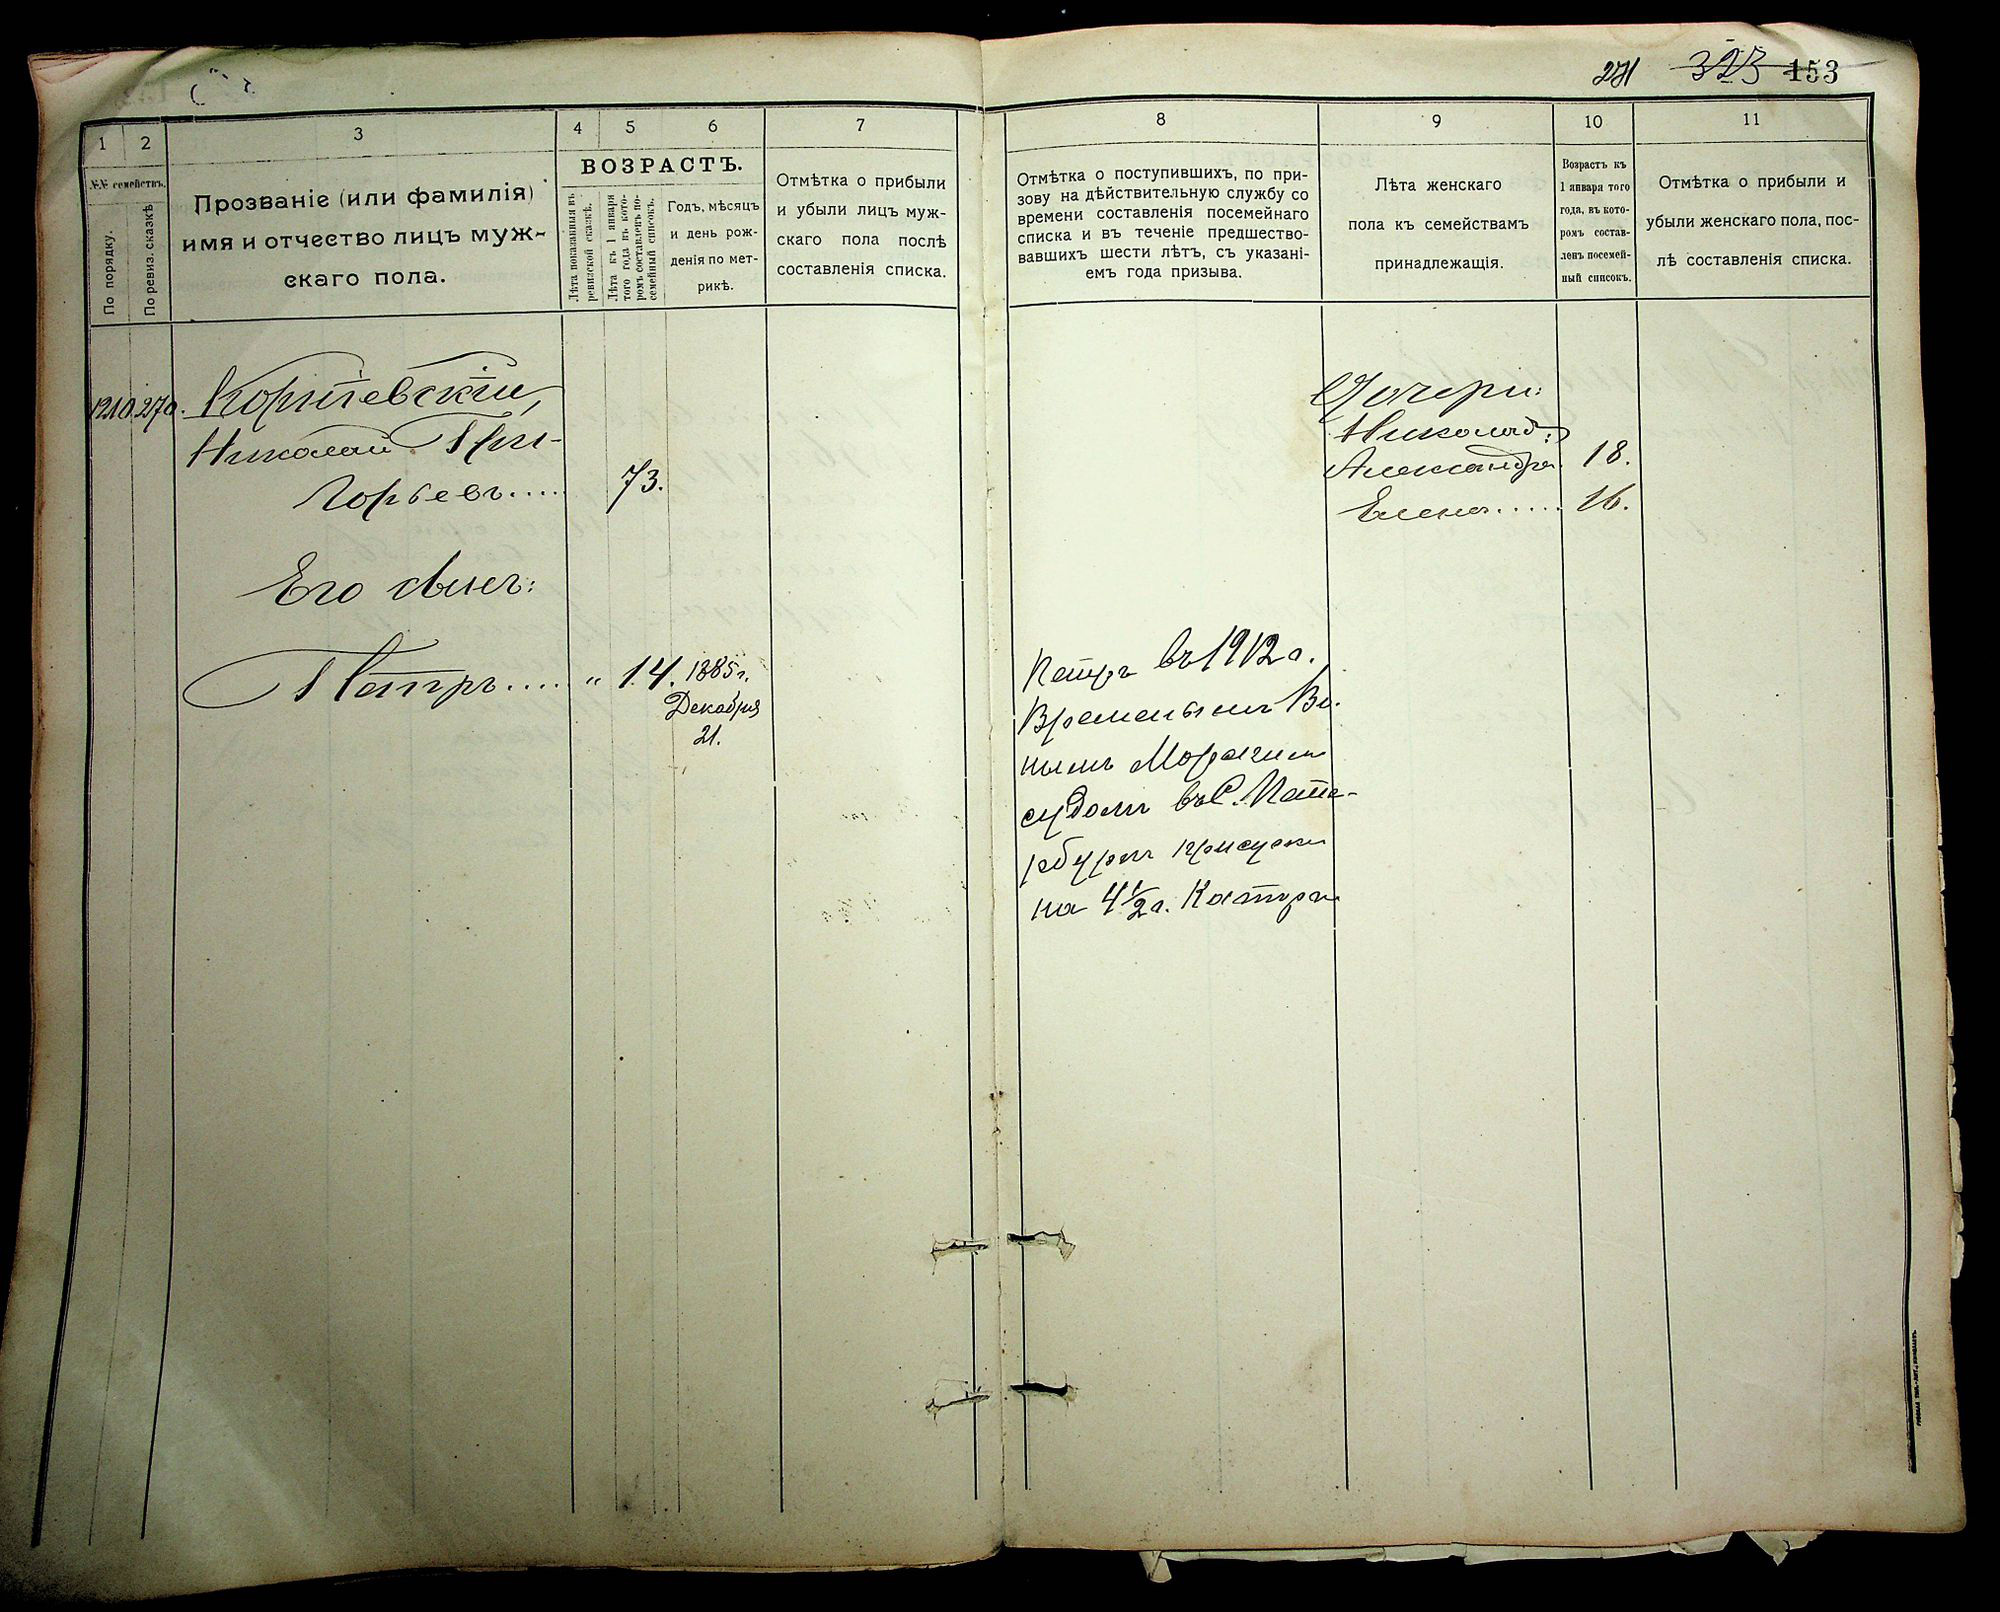 271 323 153
1
2
3
4
5
6
7
8
9
10
11
№№ семействъ.
По порядку.
По ревиз. сказкѣ
Прозваніе (или фамилія)
имя и отчество лицъ муж-
скаго пола.
ВОЗРАСТЪ.
Лѣта показанныя въ
ревизской сказкѣ.
Лѣта къ 1 января
того года въ кото-
ромъ составленъ по-
семейный списокъ.
Годъ, мѣсяцъ
и день рож-
денія по мет-
рикѣ.
Отмѣтка о прибыли
и убыли лицъ муж-
скаго пола послѣ
составленія списка.
Отмѣтка о поступившихъ, по при-
зову на дѣйствительную службу со
времени составленія посемейнаго
списка и въ теченіе предшество-
вавшихъ шести лѣтъ, съ указані-
емъ года призыва.
Лѣта женскаго
пола къ семействамъ
принадлежащія.
Возрастъ къ
1 января того
года, въ кото-
ромъ состав-
ленъ посемей-
ный списокъ.
Отмѣтка о прибыли и
убыли женскаго пола, пос-
лѣ составленія списка.
1210. 270.
Николай Гри-
горьевъ..... 73.
Его сынъ:
Петръ..... " 14. 1885 г.
Декабря
21.
Петръ въ 1912 г.
Временнымъ Во.
нымъ Морс
судомъ въ С. Пете-
рбургѣ
на 4 1/2 г. Каторги
Дочери:
Николая:
Александра. 18.
Елена..... 16.